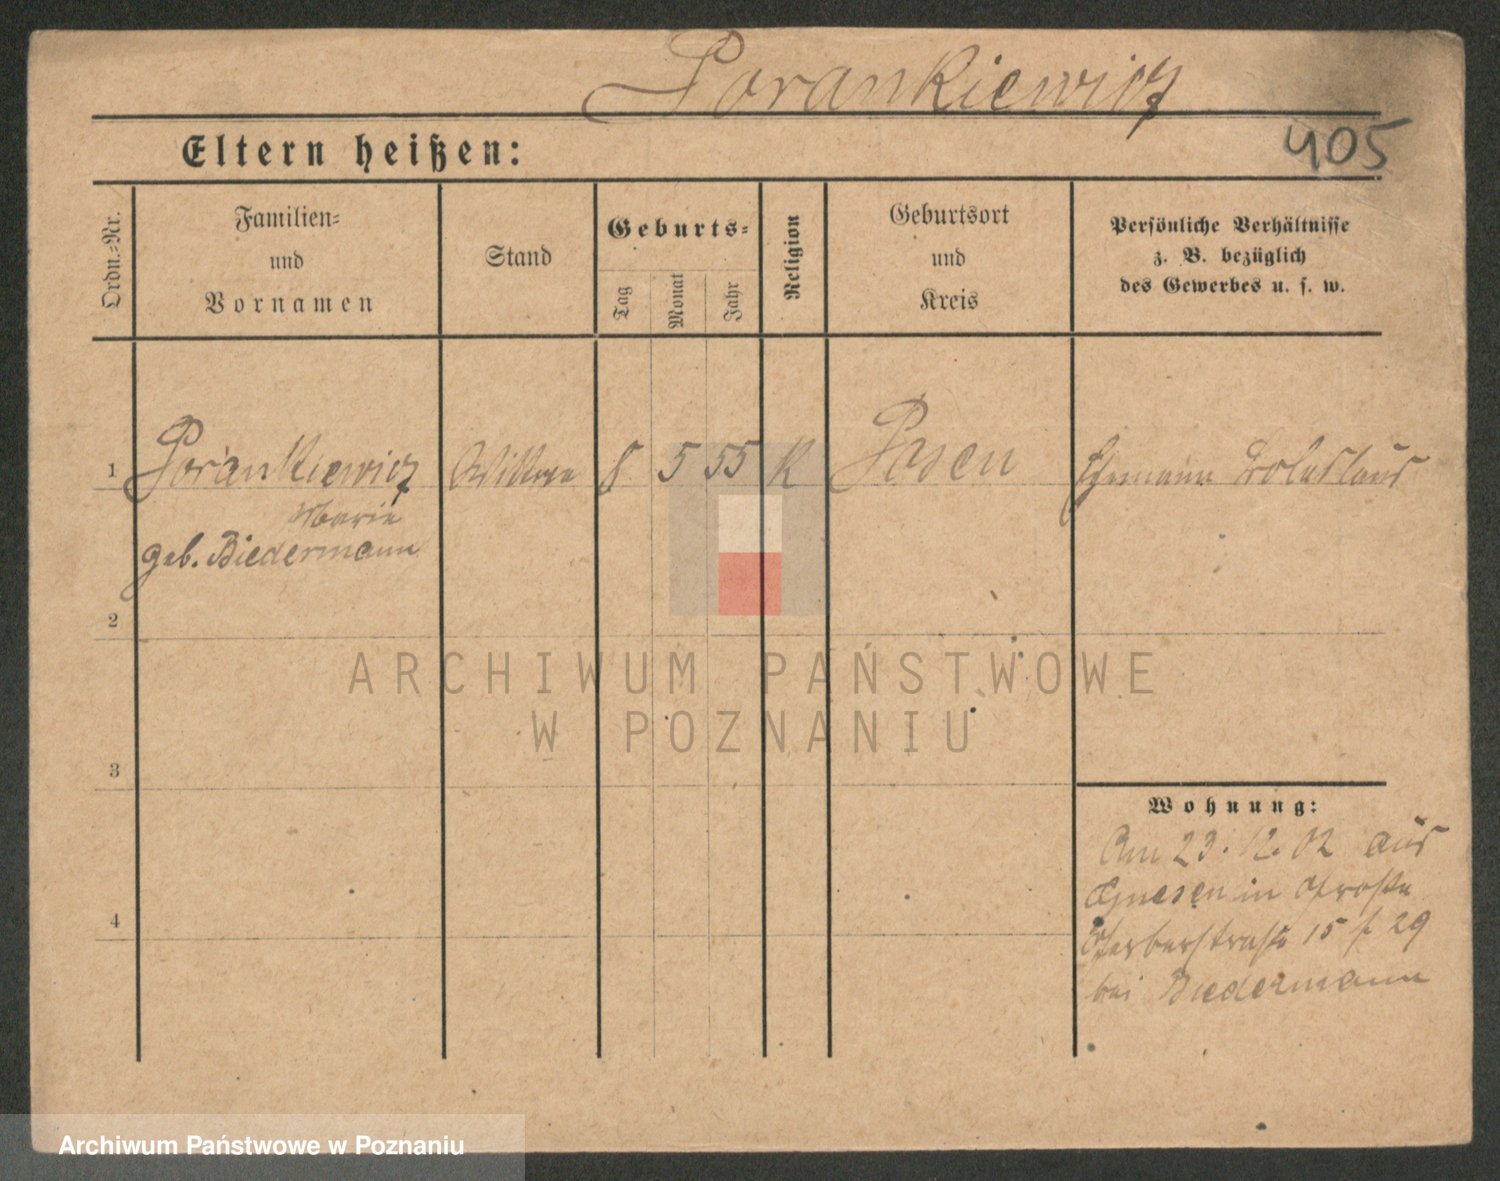 Porankiewicz
405
Eltern heißen:
Ordn.-Nr.
Familien- und Vornamen
Stand
Geburts-
Tag
Monat
Jahr
Religion
Geburtsort und Kreis
Persönliche Verhältnisse
z. B. bezüglich
des Gewerbes u. s. w.
1 Porankiewicz Wittwe 8 5 55 K Posen Ehemann Boleslaus
Marie
geb. Biedermann
2
ARCHIWUM PAŃSTWOWE
W POZNANIU
3
Wohnung:
Am 23. 12. 02 aus
Gnesen in Große
4
Gerberstraße 15 / 29
bei Biedermann
Archiwum Państwowe w Poznaniu